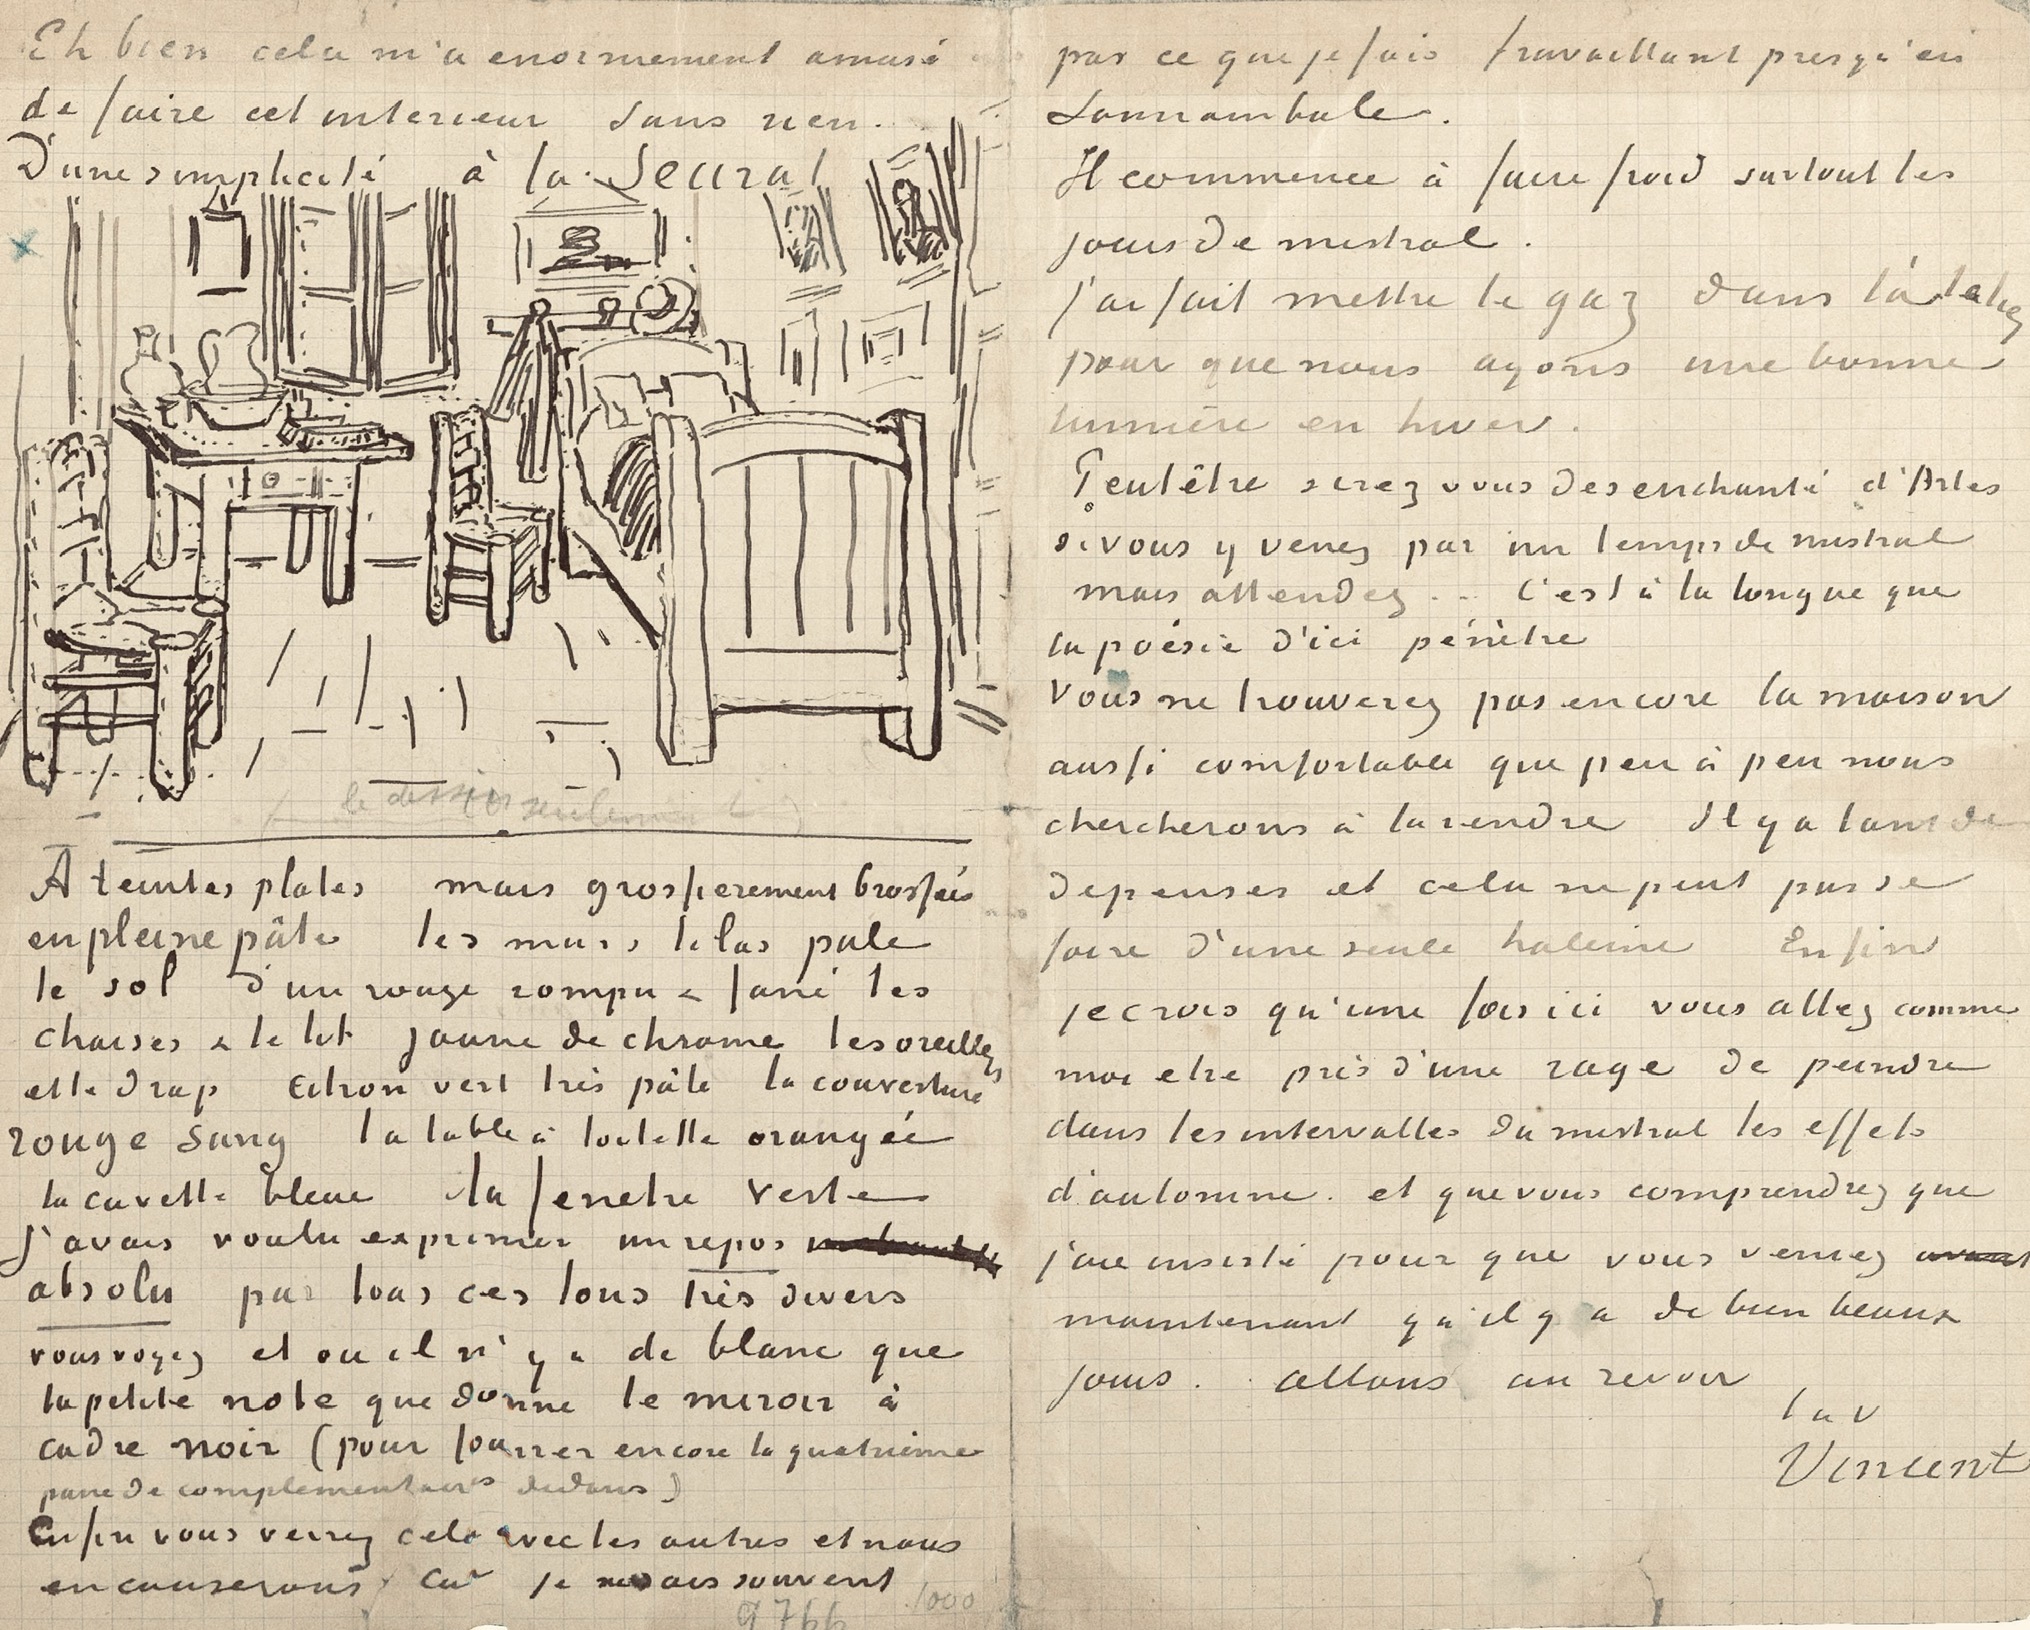 Eh bien cela m'a enormement amusé
de faire cet interieur sans rien.
D'une simplicité à la Seurat
(le dessin seulement)
A teintes plates mais grossierement brossées
en pleine pâte les murs lilas pale
le sol d'un rouge rompu & fané les
chaises & le lit jaune de chrome les oreillers
et le drap citron vert très pâle la couverture
rouge sang la table à toilette orangée
la cuvette bleue la fenetre verte
J'avais voulu exprimer un repos
absolu par tous ces tons très divers
vous voyez et ou il n'y a de blanc que
la petite note que donne le miroir à
cadre noir (pour fourrer encore la quatrième
paire de complementaires dedans)
Enfin vous verrez cela avec les autres et nous
en causerons car je ne sais souvent
9766 1000
pas ce que je fais travaillant presqu'en
somnambule.
Il commence à faire froid surtout les
jours de mistral.
J'ai fait mettre le gaz dans l'atelier
pour que nous ayons une bonne
lumière en hiver.
Peutêtre serez vous desenchanté d'Arles
si vous y venez par un temps de mistral
mais attendez .. C'est à la longue que
la poésie d'ici pénètre
Vous ne trouverez pas encore la maison
aussi comfortable que peu à peu nous
chercherons à la rendre Il y a tant de
depenses et cela ne peut pas se
faire d'une seule haleine Enfin
je crois qu'une fois ici vous allez comme
moi etre pris d'une rage de peindre
dans les intervalles du mistral les effets
d'automne. et que vous comprendrez que
j'aie insisté pour que vous veniez avant
maintenant qu'il y a de bien beaux
jours. allons au revoir
t. à v
Vincent